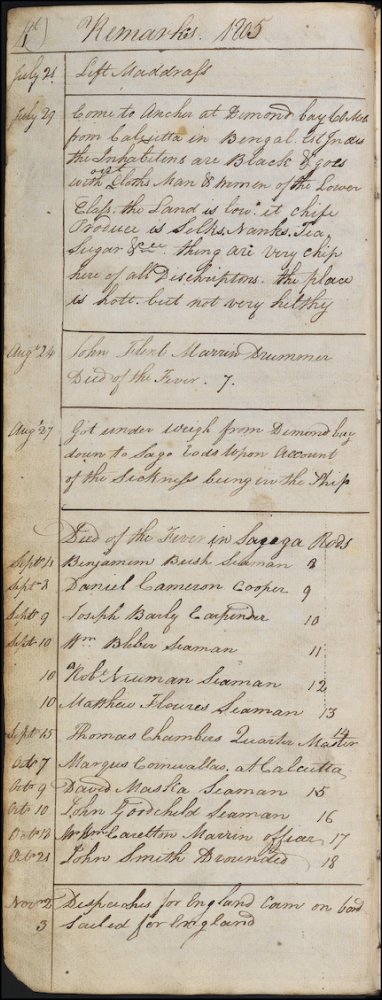 11th) Remarks. 1805
July 21 Left Maddrass
July 29 Come to Ancher at Dimond bay
from Calcutta in Bengal. Est Indies
the Inhabitens are Black & goes
with out Cloths Man & women of the Lower
Class. the Land is low. it chife
Produce is Silks, Nanks. Tea,
Sugar &c. thing are very chip
here of all Discriptons. the place
is hott. but not very hilthy
Augt 24 John Flent Marrin Drummer
Died of the Fever. 7.
Augt 27 Got under weigh from Dimond bay
down to Sago Rods Upon Account
of the Sickness being in the Ship
Died of the Fever in Sagoga Rods
Sept 1 Benjamim Bush Seaman 8
Sept 3 Daniel Cameron Cooper 9
Sept 9 Joseph Barly Carpinder 10
Sept 10 Wm Bleber Seaman 11
10 Robt Nuuman Seaman 12
10 Matthew Floures Seaman 13
Sept 15 Thomas Chambers Quarter Master 14
Octr 7 Margus Cornwallas. at Calcutta
Octr 9 David Maska Seaman 15
Octr 10 John Goodchild Seaman 16
Octr 13 Mr Wm Carelton Marrin officar 17
Octr 21 John Smith Drounded 18
Novr 2 Despaches for England Cam on bord
3 Sailed for England